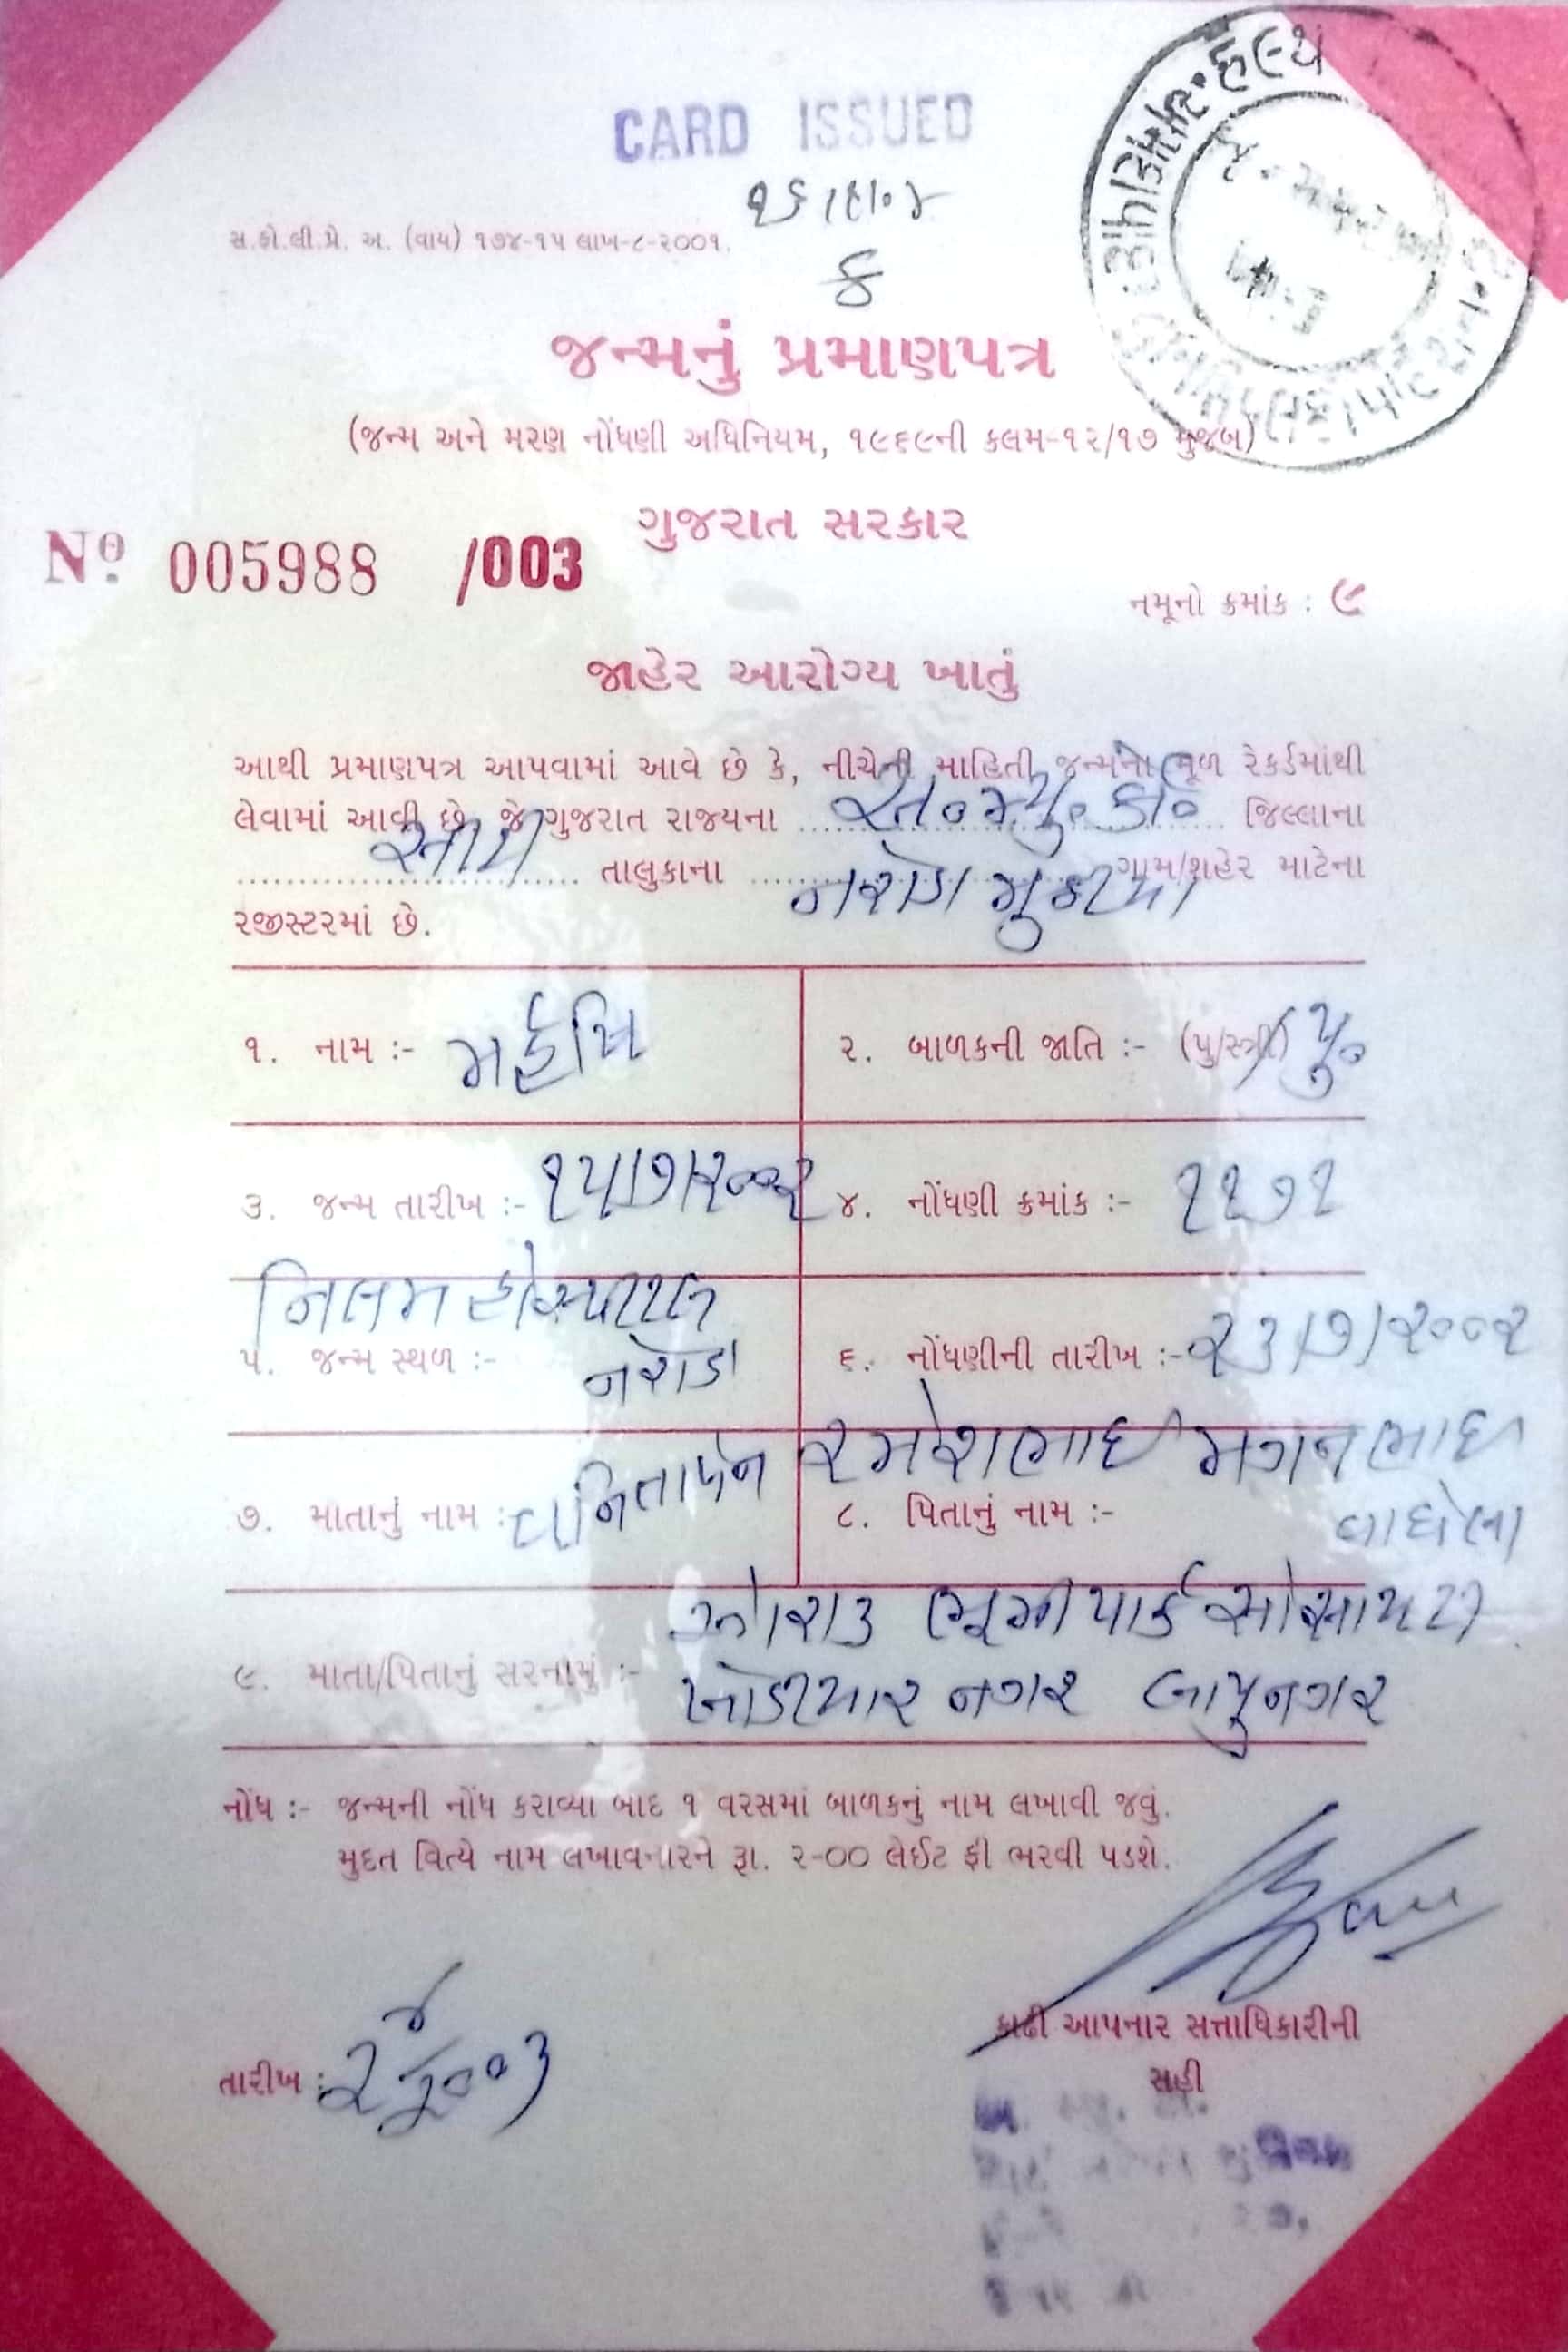 CARD ISSUED
સ.ફો.લી.પ્રે. અ. (વાય) ૧૭૪-૧૫ લાખ-૮-૨૦૦૧.
ક
જન્મનું પ્રમાણપત્ર
(જન્મ અને મરણ નોંધણી અધિનિયમ, ૧૯૬૯ની કલમ-૧૨/૧૭ મુજબ)
ગુજરાત સરકાર
Nº 005988 /003
નમૂનો ક્રમાંક : ૯
જાહેર આરોગ્ય ખાતું
આથી પ્રમાણપત્ર આપવામાં આવે છે કે, નીચેની માહિતી જન્મના મૂળ રેકર્ડમાંથી
લેવામાં આવી છે, જે ગુજરાત રાજ્યના અ૦મ્યુ૦કો૦ જિલ્લાના
તાલુકાના નરોડા મુઠીયા ગામ/શહેર માટેના
રજીસ્ટરમાં છે.
૧. નામ :- મહર્ષિ ૨. બાળકની જાતિ :- (પુ/સ્ત્રી) પુ૦
૩. જન્મ તારીખ :- ૧૫/૭/૨૦૦૨ ૪. નોંધણી ક્રમાંક :- ૧૧૭૧
નિલમ હોસ્પીટલ
૫. જન્મ સ્થળ :- નરોડા ૬. નોંધણીની તારીખ :- ૨૩/૭/૨૦૦૨
૭. માતાનું નામ :- વનિતાબેન ૮. પિતાનું નામ :- રમેશભાઈ મગનભાઈ
વાઘેલા
ભૂમી પાર્ક સોસાયટી
૯. માતા/પિતાનું સરનામું :- ખોડીયાર નગર બાપુનગર
નોંધ :- જન્મની નોંધ કરાવ્યા બાદ ૧ વરસમાં બાળકનું નામ લખાવી જવું.
મુદત વિત્યે નામ લખાવનારને રૂા. ૨-૦૦ લેઈટ ફી ભરવી પડશે.
કાઢી આપનાર સત્તાધિકારીની
તારીખ :
સહી